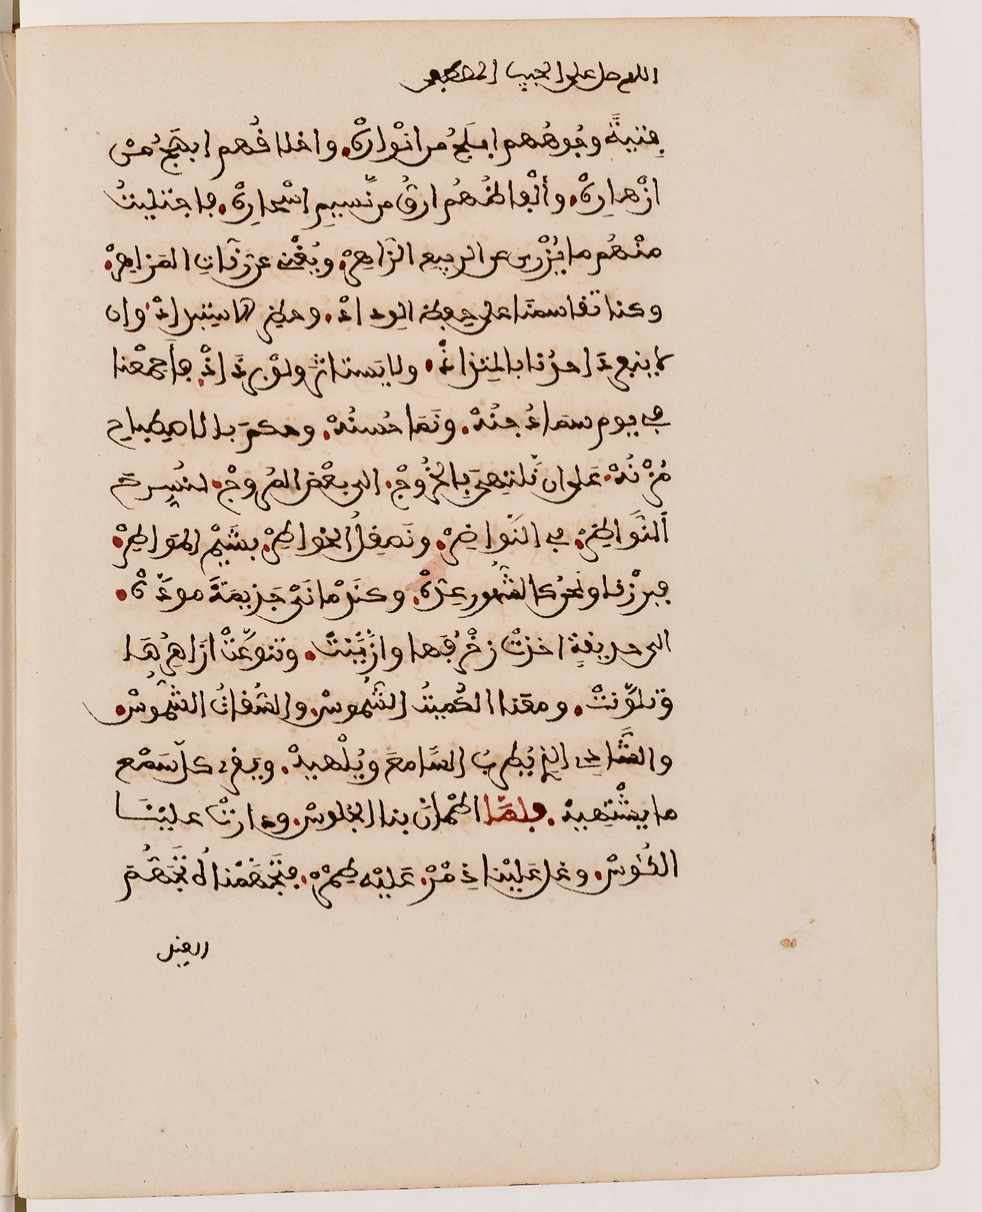 اللهم صل على الحبيب المصطفى
فتيةً وجُوهُهم ابلَجُ من انْوارِهْ. واخلاقُهم ابهَجُ مِنْ
ازْهارِهْ. وألْفاظُهُم ارقُ من نَّسيمِ اسْحارِهْ. فاجتليتُ
منْهُم ما يُزْرى عن الربيع الزَّاهِرْ. ويُغْنى عن رَنَّاتِ المَزاهِرْ.
وكنا تقاسمنا على حِفظ الودادْ. وحظر الاستبدادْ. وان
لا ينفرد احدُنا بالتِذاذْ. ولا يَستاثر ولوْ برذاذْ. فأجمعْنا
في يوم سَما دَجنُهْ. ونَمَا حُسنُهْ. وحكمَ بالاصطباح
مُزْنُهْ. على ان نَّلتهىَ بالخُروجْ. الى بعْض المُروجْ. لنُسرحَ
ألنَّواظِرْ. في النَّواضِرْ. ونَصقِلُ الخواطِرْ. بشَيْم المَواطِرْ.
فبرزْنا ونحْنُ كالشُّهور عِدَّهْ. وكنَدْمانَىْ جَذيمَةَ مودَّهْ.
الى حديقةٍ اخذتْ زخْرُفَها وازَّيَّنتْ. وتنوَّعَتْ ازَاهِرُهَا
وَتلوَّنتْ. ومعَنا الكُميتُ الشَّمُوسْ. والسُّقاةُ الشُّمُوسْ.
والشَّادِى الذى يُطرِبُ السَّامعَ ويُلْهيهْ. ويقرى كلَّ سَمْع
ما يشْتهيهْ. فلمَّا اطْمأنَ بنا الجلوسْ. ودارَتْ علينَا
الكُئوسْ. وغل عَلَيْنا ذِمْرْ. عَليْه طِمْرْ. فتَجَهَّمْناهُ تجَهُّمَ
الغيد